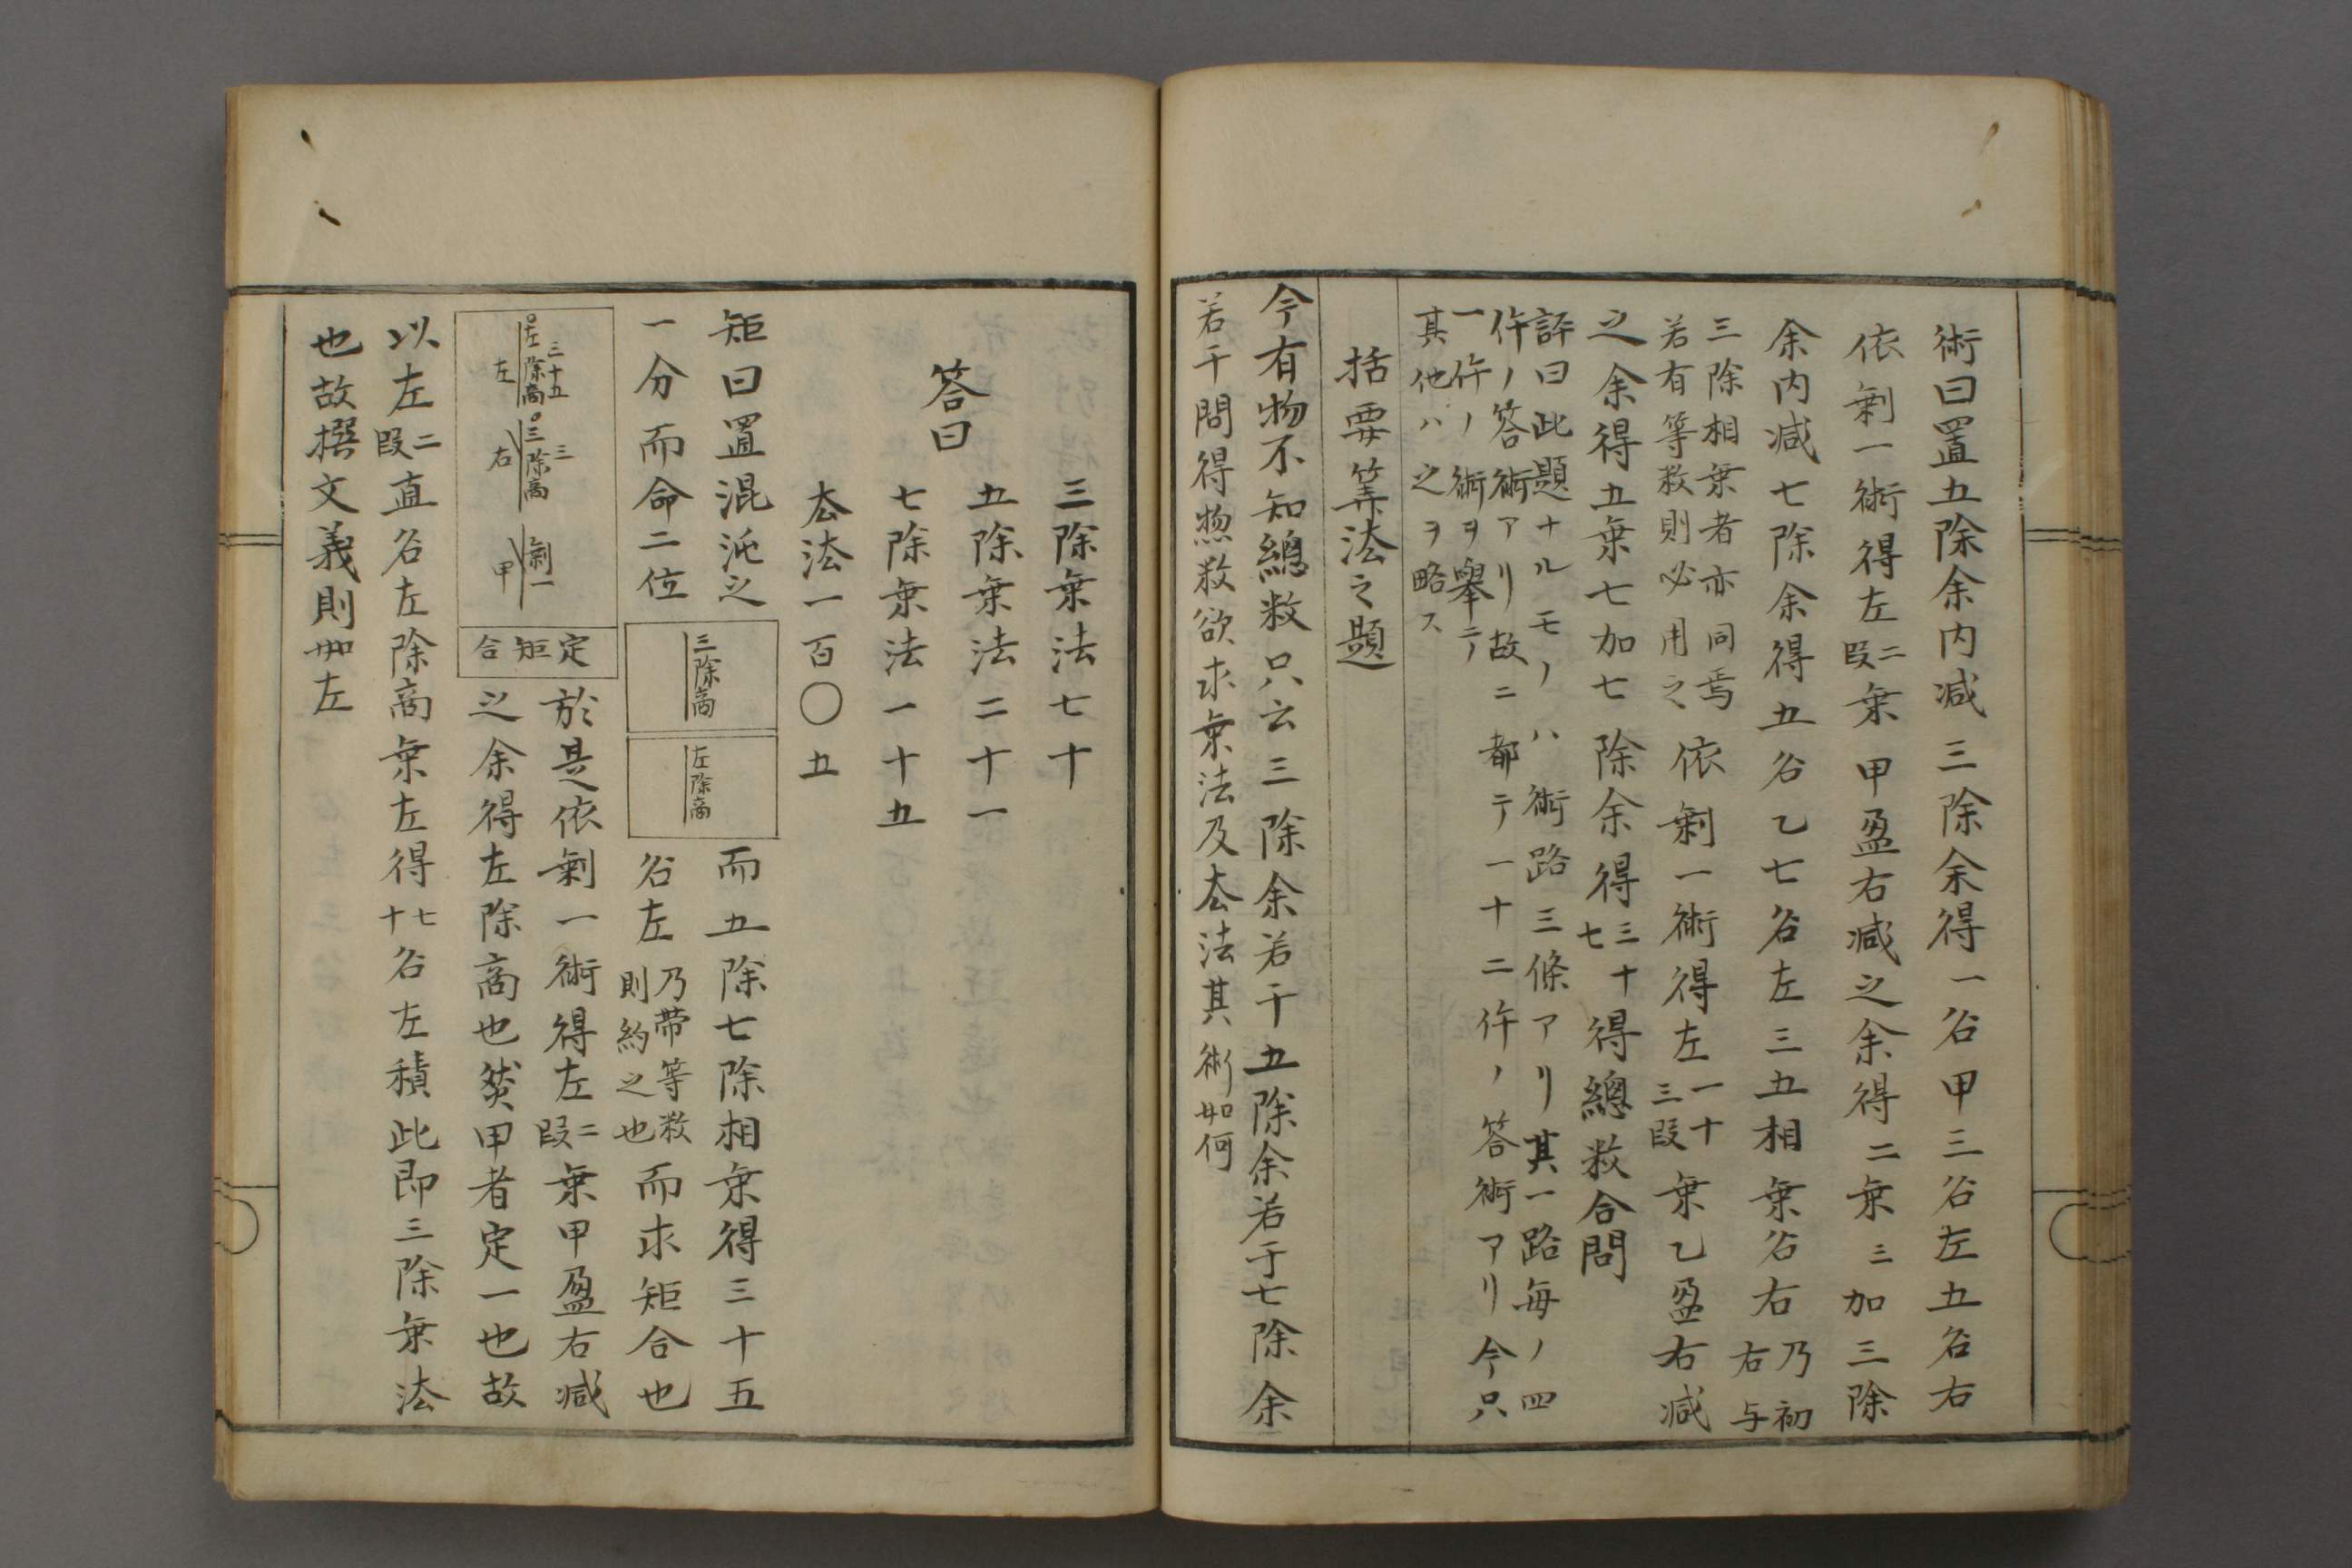 術曰置五除余内减三除余得一名甲三名左五名右
依剰一術得左二段乗甲盈右减之余得二乗三加三除
余内减七除余得五名乙七名左三五相乗名右乃初右与
三除相乗者亦同焉
若有等数則必用之
依剰一術得左一十三段乗乙盈右减
之余得五乗七加七除余得三十七得總数合問
評曰此題ナルモノハ術路三條アリ其一路毎ノ四
件ノ答術アリ故ニ都テ一十二件ノ答術アリ今只
一件ノ術ヲ舉テ
其他ハ之ヲ略ス
括要筭法之題
今有物不知總数只云三除余若干五除余若干七除余
若干問得惣数欲求乗法及去法其術如何
答曰
三除乗法七十
五除乗法二十一
七除乗法一十五
去法一百〇五
矩曰置混沌之
三除商
而五除七除相乗得三十五
一分而命二位
左除商
名左乃帯等数則約之也而求矩合也
三十五
左除商
左
三
三除商
右
剰一
甲
定矩合
於是依剰一術得左二段乗甲盈右减
之余得左除商也然甲者定一也故
以左二段直名左除商乗左得七十名左積此即三除乗法
也故撰文義則如左